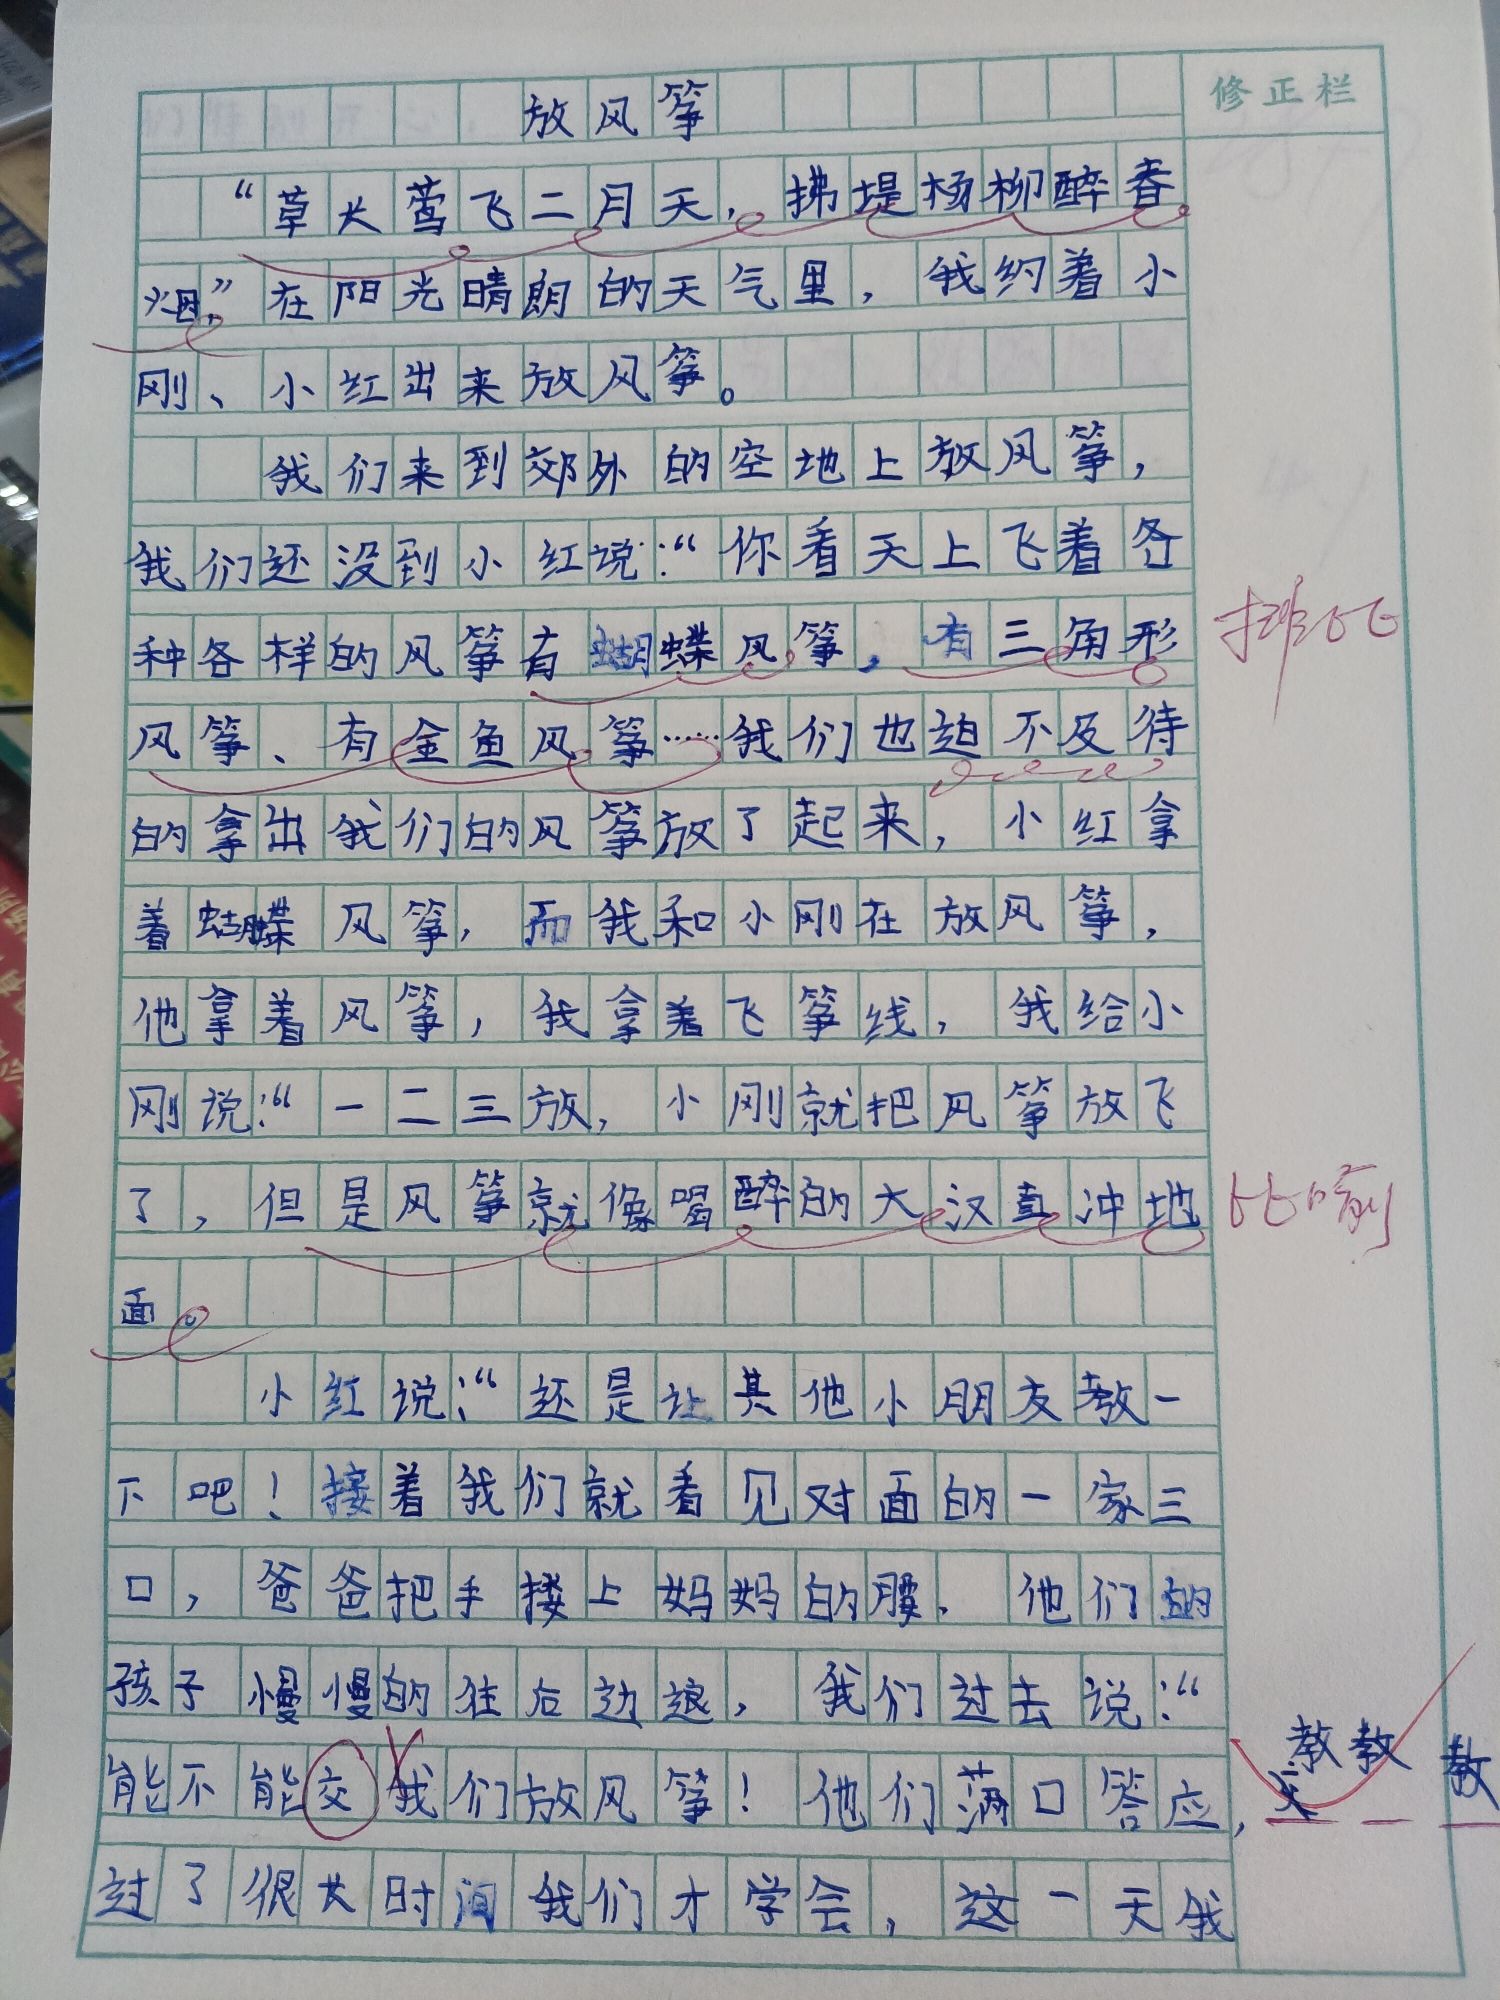 修正栏
放风筝
“草长莺飞二月天，拂堤杨柳醉春
烟，”在阳光晴朗的天气里，我约着小
刚、小红出来放风筝。
我们来到郊外的空地上放风筝，
我们还没到小红说：“你看天上飞着各
种各样的风筝有蝴蝶风筝，有三角形
排比
风筝、有金鱼风筝……我们也迫不及待
的拿出我们的风筝放了起来，小红拿
着蝴蝶风筝，而我和小刚在放风筝，
他拿着风筝，我拿着飞筝线，我给小
刚说：“一二三放，小刚就把风筝放飞
了，但是风筝就像喝醉的大汉直冲地
比喻
面。
小红说：“还是让其他小朋友教一
下吧！接着我们就看见对面的一家三
口，爸爸把手搂上妈妈的腰，他们的
孩子慢慢的往后边退，我们过去说：“
能不能交我们放风筝！他们满口答应，
教教 教
过了很长时间我们才学会，这一天我